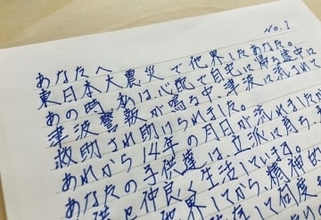 No.1
あなたへ
東日本大震災で他界したあなた。
あの時、私は心配で自宅に帰る途中に
津波警報が鳴る中、津波に流されて
救助され助けられました。
あれから14年の月日が流れましたが
あなたの子供達は、立派に育ち
仲良く生活しています。
してから、精神的
何度も